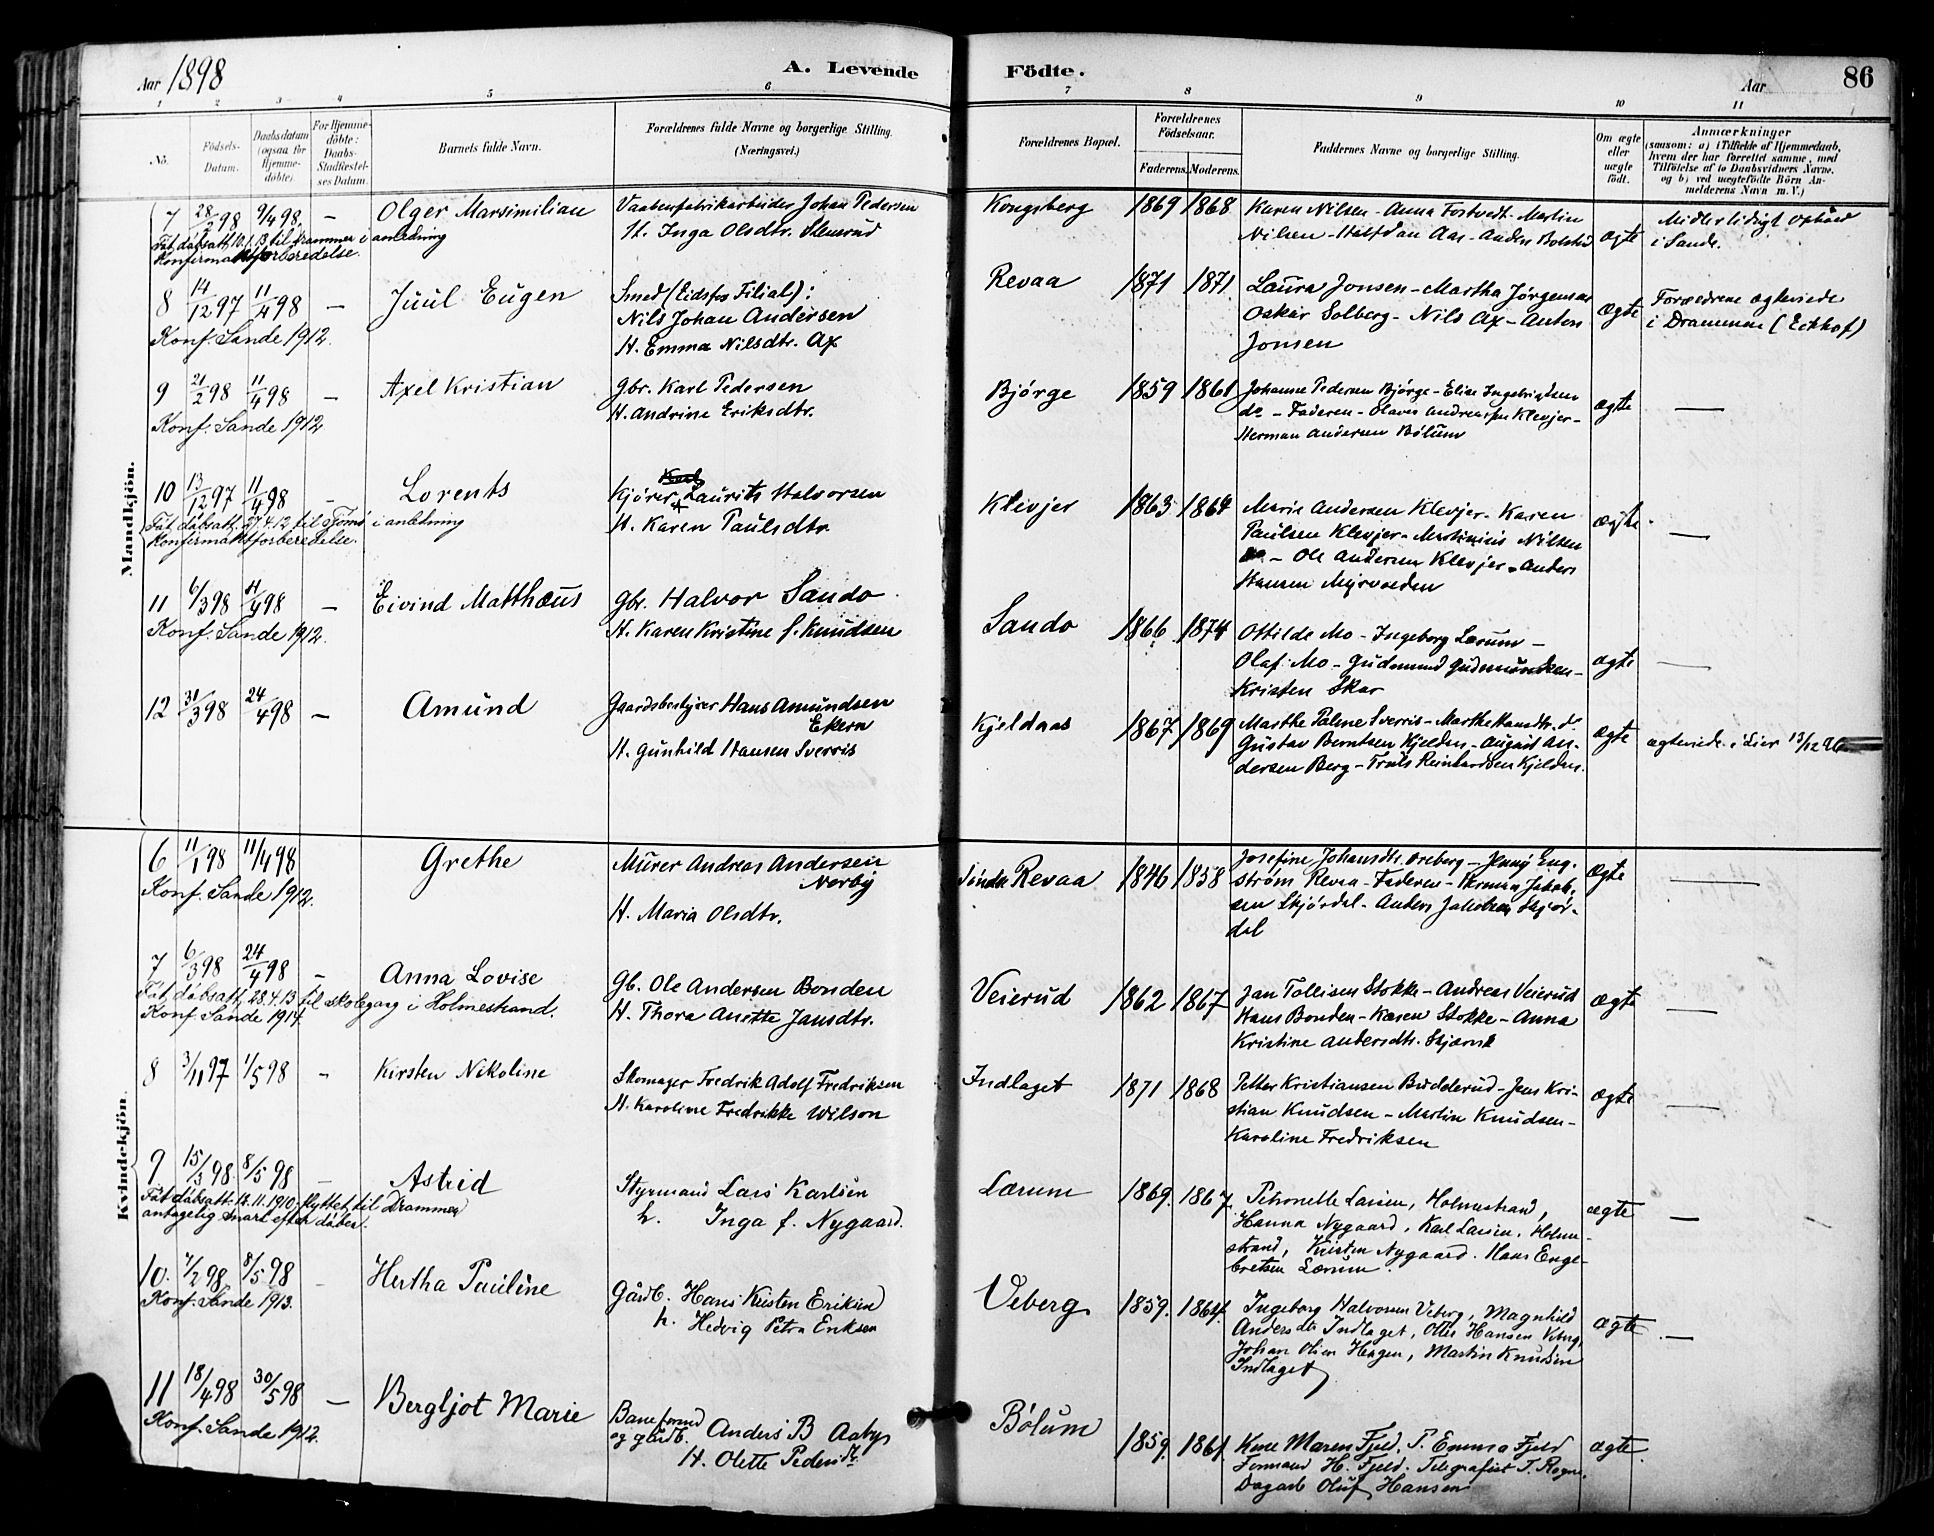 Aar 1898
A. Levende
Födte.
Aar
86
1 2 3 4 5 6 7 8 9 10 11
No.
Födsels-
Datum.
Daabsdatum
(ogsaa for
Hjemme-
döbte).
For Hjemme-
döbte:
Daabs-
Stadfæstel-
ses Datum.
Barnets fulde Navn.
Forældrenes fulde Navne og borgerlige Stilling.
(Næringsvei.)
Forældrenes Bopæl.
Forældrenes
Födselsaar.
Faderens. Moderens.
Faddernes Navne og borgerlige Stilling.
Om ægte
eller
uægte
födt.
Anmærkninger
(saasom: a) i Tilfælde af Hjemmedaab,
hvem der har forrettet samme, med
Tilföielse af to Daabsvidners Navne.
og b) ved uægtefödte Börn An-
melderens Navn m. V.)
Mandkjön.
7 28/2 98 9/4 98 – Olger Marsimilian
Vaabenfabrikarbeider Johan Pedersen
H. Inga Olsdtr. Stensrud
Kongsberg 1869 1868
Karen Nilsen - Anna Fostvedt - Martin
Nilsen - Halfdan Aas - Anders Bolstad
ægte
Midlertidigt Ophold
i Sande.
Fåt dåbsatt. 10.1.13 til Drammen i anledning
Konfirmaktforberedelse.
8 14/12 97 11/4 98 – Juul Eugen
Smed (Eidsfos Filial):
Nils Johan Andersen
H. Emma Nilsdtr. Ax
Revaa 1871 1871
Laura Jonsen - Martha Jørgensen
Oskar Solberg - Nils Ax - Anton
Jonsen
ægte
Forældrene ægteviede
i Drammen (Eckhof)
Konf. Sande 1912.
9 21/2 98 11/4 98 – Axel Kristian
Gbr. Karl Pedersen
H. Andrine Eriksdtr.
Bjørge 1859 1861
Johanne Pedersen Bjørge - Elise Ingebrigtsen
do - Faderen - Olaves Andreassen Klevjer -
Herman Andersen Bølum
ægte —
Konf. Sande 1912
10 13/12 97 11/4 98 – Lorents
Kjører Laurits Halvorsen
H. Karen Paulsdtr.
Klevjer 1863 1864
Marie Andersen Klevjer - Karen
Paulsen Klevjer - Martinius Nilsen
do - Ole Andersen Klevjer - Anders
Hansen Myrvolden
ægte —
Fåt dåbsatt. 27.4.12 til Tjømø i anledning
Konfirmaktforberedelse.
11 6/3 98 11/4 98 – Eivind Matthæus
Gbr. Halvor Sando
H. Karen Kristine f. Knudsen
Sando 1866 1874
Ottilde Mo - Ingeborg Lærum -
Olaf Mo - Gudmund Gudmundsen -
Kristen Skar
ægte —
Konf. Sande 1912.
12 31/3 98 24/4 98 – Amund
Gaardsbestyrer Hans Amundsen
Ekern
H. Gunhild Hansen Sverris
Kjeldaas 1867 1869
Marthe Paline Sverris - Marthe Hansdtr. do
Gustav Berntsen Kjelden - August An-
dersen Berg - Truls Reinhardsen Kjelden.
ægte
ægteviede i Lier 13/12 96
Kvindekjön.
6 11/1 98 11/4 98 Grethe
Murer Andreas Andersen
Nerby
H. Maria Olsdtr.
Søndre Revaa 1846 1858
Josefine Johansdtr. Oreberg - Jenny Eng-
strøm Revaa - Faderen - Herman Jakob-
sen Skjørdal - Anders Jakobsen Skjør-
dal
ægte —
Konf. Sande 1912.
7 6/3 98 24/4 98 – Anna Lovise
Gb. Ole Andersen Bonden
H. Thora Anette Jansdtr.
Veierud 1862 1867
Jan Tollisen Stokke - Andreas Veierud
Hans Bonden - Karen Stokke - Anna
Kristine Andersdtr. Skjærvik
ægte —
Fåt dåbsatt. 28.4.13 til skolegang i Holmestrand.
Konf Sande 1914.
8 3/11 97 1/5 98 – Kirsten Nikoline
Skomager Fredrik Adolf Fredriksen
H. Karoline Fredrikke Wilson
Indlaget 1871 1868
Petter Kristiansen Budderud - Jens Kri-
stian Knudsen - Martin Knudsen -
Karoline Fredriksen
ægte —
9 15/3 98. 8/5 98 – Astrid
Styrmand Lars Karlsen
h. Inga f. Nygaard.
Lærum 1869. 1867.
Petronelle Larsen, Holmestrand,
Hanna Nygaard, Karl Larsen, Holme-
strand, Kristen Nygaard. Hans Enge-
bretsen Lærum.
ægte —
Fåt dåbsatt. 12.11.1910, flyttet til Drammen
antagelig snart efter dåben.
10. 7/2 98. 8/5 98 – Hertha Pauline
Gårdb. Hans Kristen Eriksen
h. Hedvig Petra Eriksen
Veberg 1859. 1864.
Ingeborg Halvorsen Veberg, Magnhild
Andersdtr Indlaget, Otter Hansen Veberg,
Johan Olsen Hagen, Martin Knudsen
Indlaget
ægte —
Konf. Sande 1913.
11 18/4 98 30/5 98 – Bergljot Marie
Baneformd
og gårdb. Anders B Aaby
H. Olette Pedersdtr.
Bölum 1859. 1861.
Kone Maren Fjeld. P. Emma Fjeld
Formand H. Fjeld. Telegrafist T. Rogne.
Dagarb Oluf Hansen
ægte.
Konf. Sande 1912.